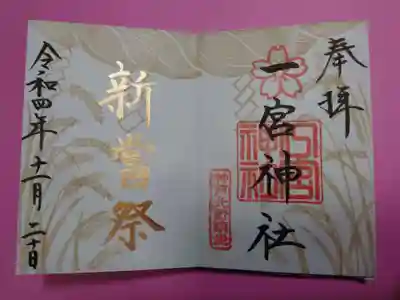 奉拝
一宮神社
一宮神社
新嘗祭
令和四年十一月二十日